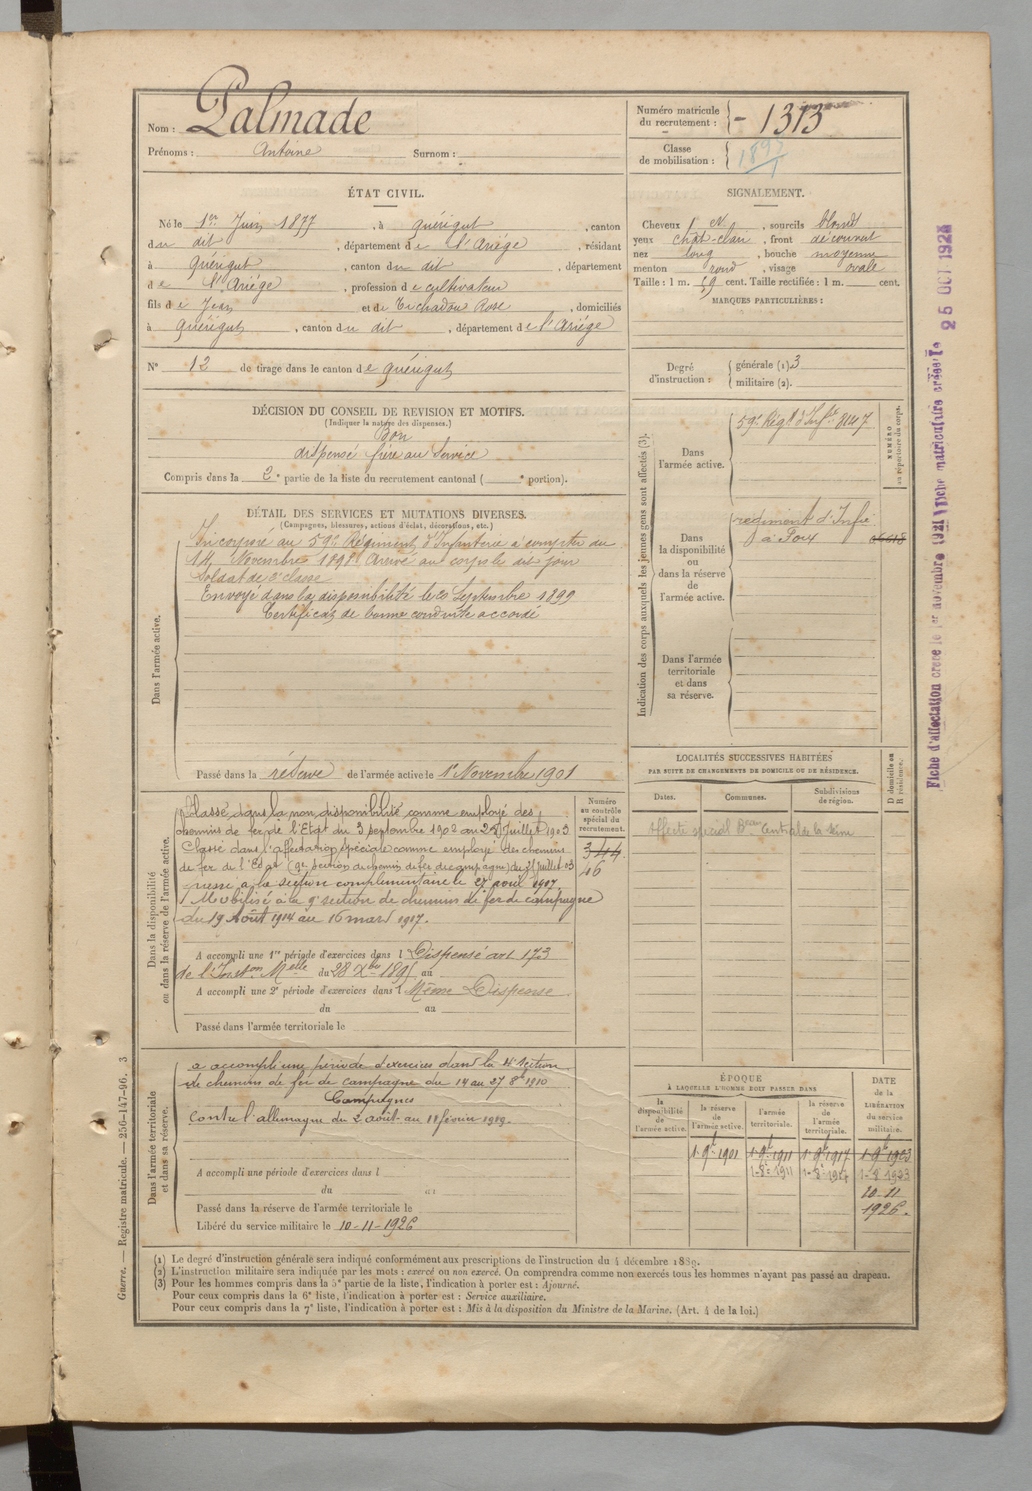 Nom : Palmade
Prénoms : Antoine Surnom :
Numéro matricule
du recrutement : 1313
Classe
de mobilisation : 1897
ÉTAT CIVIL.
Né le 1er Juin 1877, à Quérigut, canton
du dit, département de l'Ariège, résidant
à Quérigut, canton du dit, département
de l'Ariège, profession de cultivateur
fils de Jean et de Tichadou Rose, domiciliés
à Quérigut, canton du dit, département de l'Ariège
N° 12 de tirage dans le canton de Quérigut
SIGNALEMENT.
Cheveux et, sourcils blond
yeux chât-clair, front découvert
nez long, bouche moyenne
menton rond, visage ovale
Taille : 1 m. 59 cent. Taille rectifiée : 1 m. cent.
MARQUES PARTICULIÈRES :
Degré
d'instruction :
générale (1). 3
militaire (2).
DÉCISION DU CONSEIL DE REVISION ET MOTIFS.
(Indiquer la nature des dispenses.)
Bon
dispensé frère au Service
Compris dans la 2e partie de la liste du recrutement cantonal ( e portion).
DÉTAIL DES SERVICES ET MUTATIONS DIVERSES.
(Campagnes, blessures, actions d'éclat, décorations, etc.)
Dans l'armée active.
Incorporé au 59e Régiment d'Infanterie à compter du
14 Novembre 1898 Arrivé au corps le dit jour
Soldat de 2e classe
Envoyé dans la disponibilité le 20 Septembre 1899
Certificat de bonne conduite accordé
Passé dans la réserve de l'armée active le 1er Novembre 1901
Indication des corps auxquels les jeunes gens sont affectés (3).
NUMÉRO
au répertoire du corps.
Dans
l'armée active.
59e Régt d'Infie 8447
Dans
la disponibilité
ou
dans la réserve
de
l'armée active.
régiment d'Infie
à Foix
Dans l'armée
territoriale
et dans
sa réserve.
Dans la disponibilité
ou dans la réserve de l'armée active.
Numéro
au contrôle
spécial du
recrutement.
344
16
Classé dans la non disponibilité comme employé des
chemins de fer de l'Etat du 3 septembre 1902 au 28 Juillet 1903
Classé dans l'affectation spéciale comme employé des chemins
de fer de l'Etat (9e section de chemin de fer de campagne) du 28 Juillet 03
passé à la section complémentaire le 27 août 1907.
Mobilisé à la 9e section de chemins de fer de campagne
du 19 Août 1914 au 16 mars 1917.
A accompli une 1re période d'exercices dans l Dispensé art 173
de l'Inston Melle du 28 Xbre 1895 au
A accompli une 2e période d'exercices dans l Même Dispense
du au
Passé dans l'armée territoriale le
LOCALITÉS SUCCESSIVES HABITÉES
PAR SUITE DE CHANGEMENTS DE DOMICILE OU DE RÉSIDENCE.
Dates. Communes. Subdivisions
de région.
D domicile ou
R résidence.
Affecté spécial Beau Central de la Seine
Dans l'armée territoriale
et dans sa réserve.
a accompli une période d'exercices dans la 4e Section
de chemins de fer de campagne du 14 au 27 8bre 1910
Campagnes
Contre l'allemagne du 2 août au 11 février 1919.
A accompli une période d'exercices dans l
du au
Passé dans la réserve de l'armée territoriale le
Libéré du service militaire le 10-11-1926
ÉPOQUE
À LAQUELLE L'HOMME DOIT PASSER DANS
la
disponibilité
de
l'armée active.
la réserve
de
l'armée active.
l'armée
territoriale.
la réserve
de
l'armée
territoriale.
DATE
de la
LIBÉRATION
du service
militaire.
1-9bre 1901 1-9bre 1911 1-9bre 1917 1-9bre 1923
1-8e 1911 1-8e 1917 1-8e 1923
10-11
1926.
(1) Le degré d'instruction générale sera indiqué conformément aux prescriptions de l'instruction du 4 décembre 1889.
(2) L'instruction militaire sera indiquée par les mots : exercé ou non exercé. On comprendra comme non exercés tous les hommes n'ayant pas passé au drapeau.
(3) Pour les hommes compris dans la 5e partie de la liste, l'indication à porter est : Ajourné.
Pour ceux compris dans la 6e liste, l'indication à porter est : Service auxiliaire.
Pour ceux compris dans la 7e liste, l'indication à porter est : Mis à la disposition du Ministre de la Marine. (Art. 4 de la loi.)
Guerre. — Registre matricule. — 256-147-96. 3
Fiche d'affectation créée le 1er novembre 1921 Fiche matriculaire créée le 25 OCT 1928